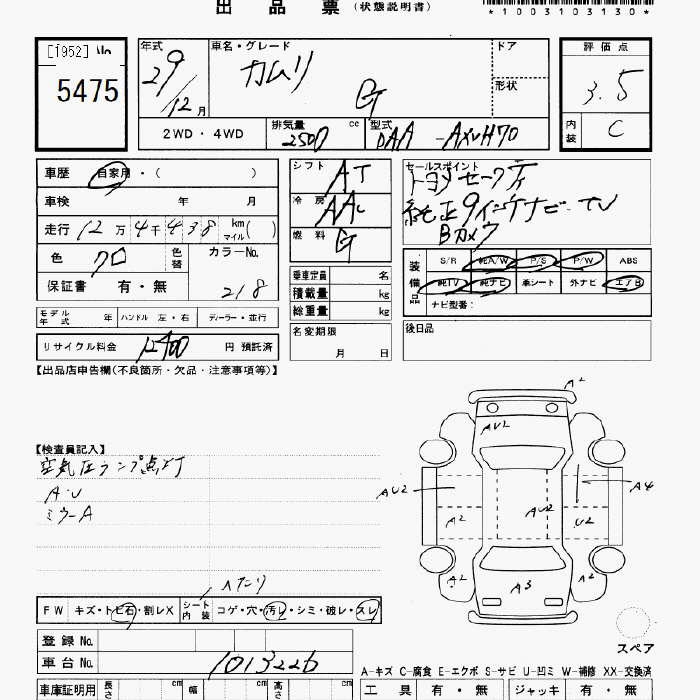 出品票（状態説明書）
*1003103130*
[1952] No
5475
年式 29/12月
車名・グレード カムリ G
ドア
形状
評価点 3.5
内装 C
2WD・4WD
排気量 2500 cc
型式 DAA-AXVH70
車歴 自家用・（ ）
車検 年 月
走行 12万4千438 km マイル( )
色 クロ 色替
カラーNo. 218
保証書 有・無
シフト AT
冷房 AAC
燃料 G
乗車定員 名
積載量 kg
総重量 kg
セールスポイント
トヨタセーフティ
純正9インチナビ・TV
Bカメラ
装備品
S/R 純A/W P/S P/W ABS
純TV 純ナビ 革シート 外ナビ エアB
ナビ型番：
モデル年式 年 ハンドル 左・右 ディーラー・並行
名変期限 月 日
後日品
リサイクル料金 12400 円 預託済
【出品店申告欄(不良箇所・欠品・注意事項等)】
【検査員記入】
空気圧ランプ点灯
A・U
ミラーA
A2
AU2
AU2
A4
A2
AU2
U2
A2
A3
A2
へたり
FW キズ・トビ石・割レX
シート内装 コゲ・穴・汚レ・シミ・破レ・スレ
スペア
登録No.
車台No. 1013226
A-キズ C-腐食 E-エクボ S-サビ U-凹ミ W-補修 XX-交換済
車庫証明用 長さ cm 幅 cm 高さ cm
工具 有・無 ジャッキ 有・無